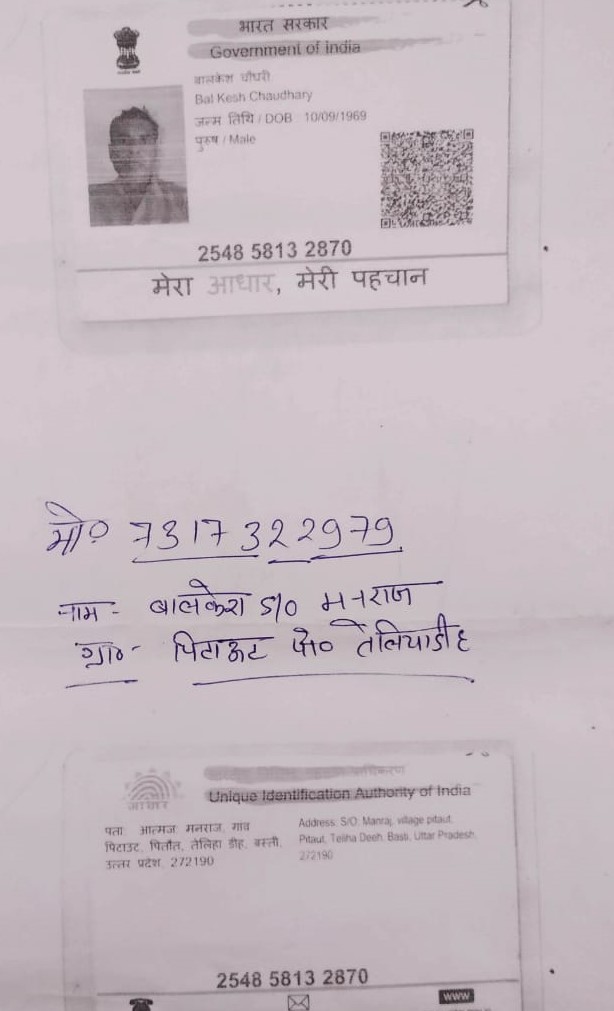 भारत सरकार
Government of India
बालकेश चौधरी
Bal Kesh Chaudhary
जन्म तिथि / DOB 10/09/1969
पुरुष / Male
2548 5813 2870
मेरा आधार, मेरी पहचान
मो० 7317322979
नाम - बालकेश S/O मनराज
ग्रा०- पिटाऊट पो० तेलियाडीह
Unique Identification Authority of India
आधार
पता आत्मज मनराज, गाव
पिटाउट, पितौत, तेलिहा डीह, बस्ती,
उत्तर प्रदेश, 272190
Address: S/O: Manraj, village pitaut,
Pitaut, Teliha Deeh, Basti, Uttar Pradesh,
272190
2548 5813 2870
www